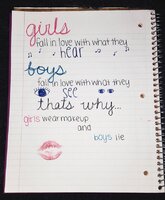 girls
fall in love with what they
hear
boys
fall in love with what they
see
thats why...
girls wear makeup
and
boys lie